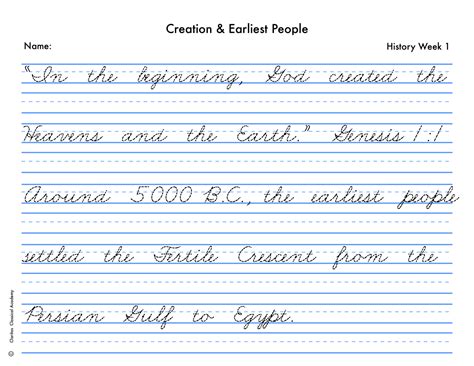 Creation & Earliest People
Name: History Week 1
"In the beginning, God created the
Heavens and the Earth." Genesis 1:1
Around 5000 B.C., the earliest people
settled the Fertile Crescent from the
Persian Gulf to Egypt.
© Charlas Classical Academy